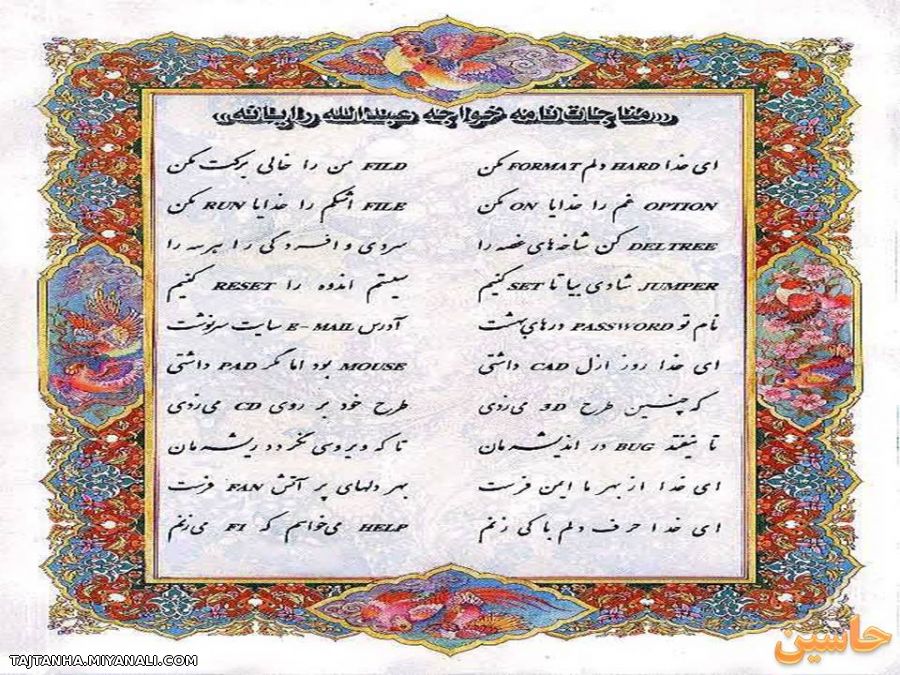 «مناجات نامه خواجه عبدالله رایانه»
ای خدا HARD دلم FORMAT مکن FILD من را خالی برکت مکن
OPTION غم را خدایا ON مکن FILE اشکم را خدایا RUN مکن
DELTREE کن شاخه‌های غصه را سردی و افسردگی را هر سه را
JUMPER شادی بیا تا SET کنیم سیستم اندوه را RESET کنیم
نام تو PASSWORD درهای بهشت آدرس E-MAIL سایت سرنوشت
ای خدا روز ازل CAD داشتی MOUSE بود اما مگر PAD داشتی
که چنین طرح 3D می‌زدی طرح خود بر روی CD می‌زدی
تا نیفتد BUG در اندیشه‌مان تا که ویروسی نگردد ریشه‌مان
ای خدا از بهر ما ایمن فرست بهر دلهای پر آتش FAN فرست
ای خدا حرف دلم با کی زنم HELP می‌خواهم که F1 می‌زنم
حاسین
TAJTANHA.MIYANALI.COM